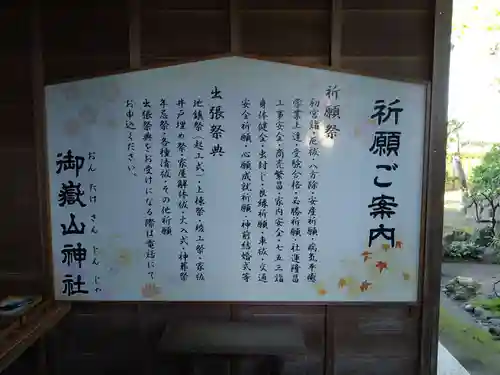 祈願ご案内
祈願祭
初宮詣・厄祓・八方除・安産祈願・病気平癒
学業上達・受験合格・必勝祈願・社運隆昌
工事安全・商売繁昌・家内安全・七五三詣
身体健全・虫封じ・良縁祈願・車祓・交通
安全祈願・心願成就祈願・神前結婚式等
出張祭典
地鎮祭（起工式）・上棟祭・竣工祭・家祓
井戸埋め祭・家屋解体祓・火入式・神葬祭
年忌祭・各種清祓・その他祈願
出張祭典をお受けになる際は電話にて
お申込ください。
御嶽山神社
おんたけさんじんじゃ